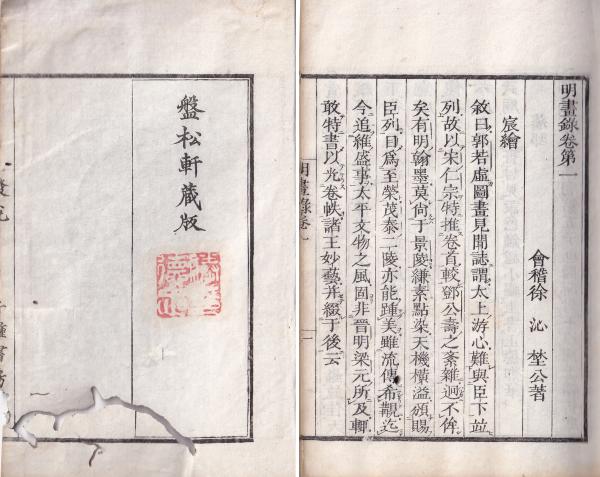 明畫錄卷第一
會稽徐沁埜公著
宸繪
敘曰郭若虛圖畫見聞誌謂太上游心難與臣下竝
列故以宋仁宗特推卷首較鄧公壽之紊雜迥不侔
矣有明翰墨莫尙于景陵縑素點染天機橫溢頒賜
臣列目為至榮茂泰二陵亦能踵美雖流傳希覯迄
今追維盛事太平文物之風固非晉明梁元所及輙
敢特書以光卷帙諸王妙藝幷綴于後云
明畫錄卷一
盤松軒藏版